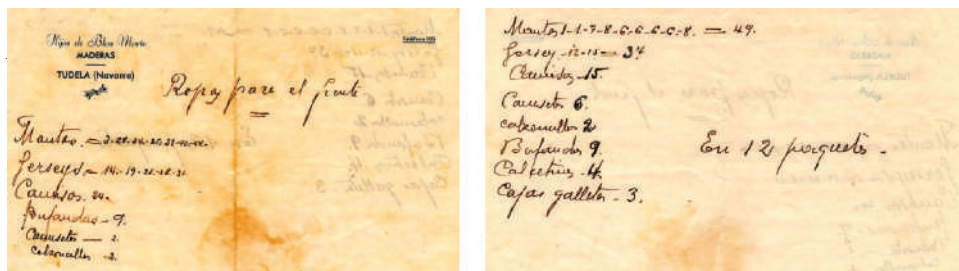 Hijos de Blas Morte
MADERAS
TUDELA (Navarra)
Ropas para el frente
Mantas. =
Jerseys = 14-19-21-18-21
Camisas. 24.
Bufandas - 9.
Camisetas — 2.
calzoncillos - 2.
Mantas 1-1-7-8-6-6-6-6-8. = 49.
Jersey -12-15 = 37
Camisas - 15.
Camisetas 6.
calzoncillos 2
Bufandas 9.
Calcetines - 4.
Cajas galletas - 3.
En 12 paquetes -